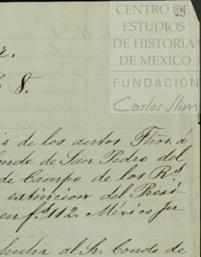 CENTRO DE
ESTUDIOS
DE HISTORIA
DE MEXICO
FUNDACIÓN
Carlos Slim
8.
de los autos Fhos. á
onde de San Pedro del
de Campo de los Rs.
extincion del Presi
en fs 112. México
hecha al Sr. Conde de